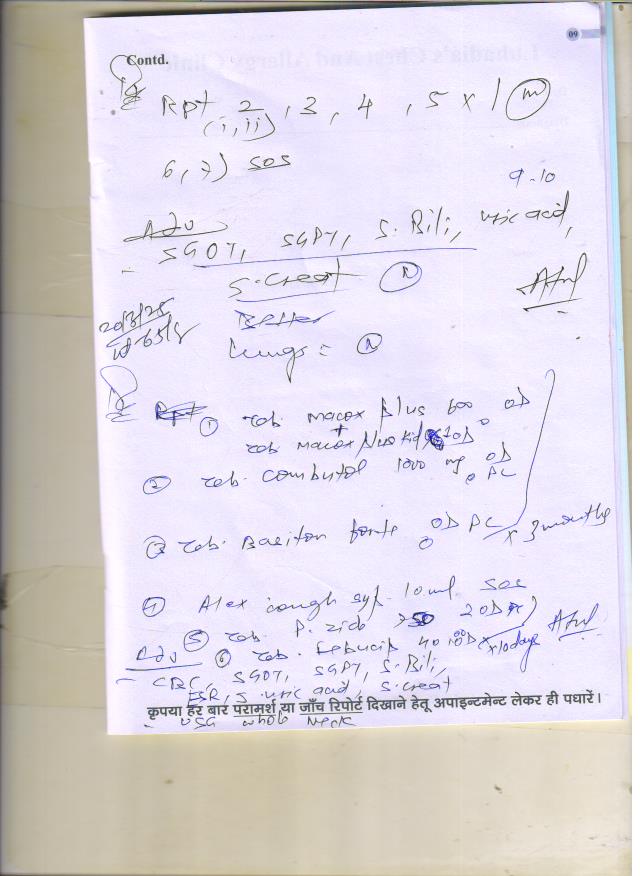 09
Contd.
Rpt 2 (i, ii), 3, 4, 5 x 1 m
6, 7) SOS
9-10
Adv
SGOT, SGPT, S. Bili, uric acid,
S. Creat N
20/3/25
Better
Lungs = N
Rpt
① Tab. Macox plus 600 OD
+
Tab. Macox plus kid OD
② Tab. Combutol 1000 mg OD PC
③ Tab. Forte OD PC x 3 months
④ Alex cough syp. 10 ml SOS
⑤ Tab. P. zide 750 2 OD
Adv ⑥ Tab. Febucip 40 OD x 10 days
- CBC, SGOT, SGPT, S. Bili,
ESR, S. uric acid, S. creat
कृपया हर बार परामर्श या जाँच रिपोर्ट दिखाने हेतू अपाइन्टमेन्ट लेकर ही पधारें।
- USG whole neck